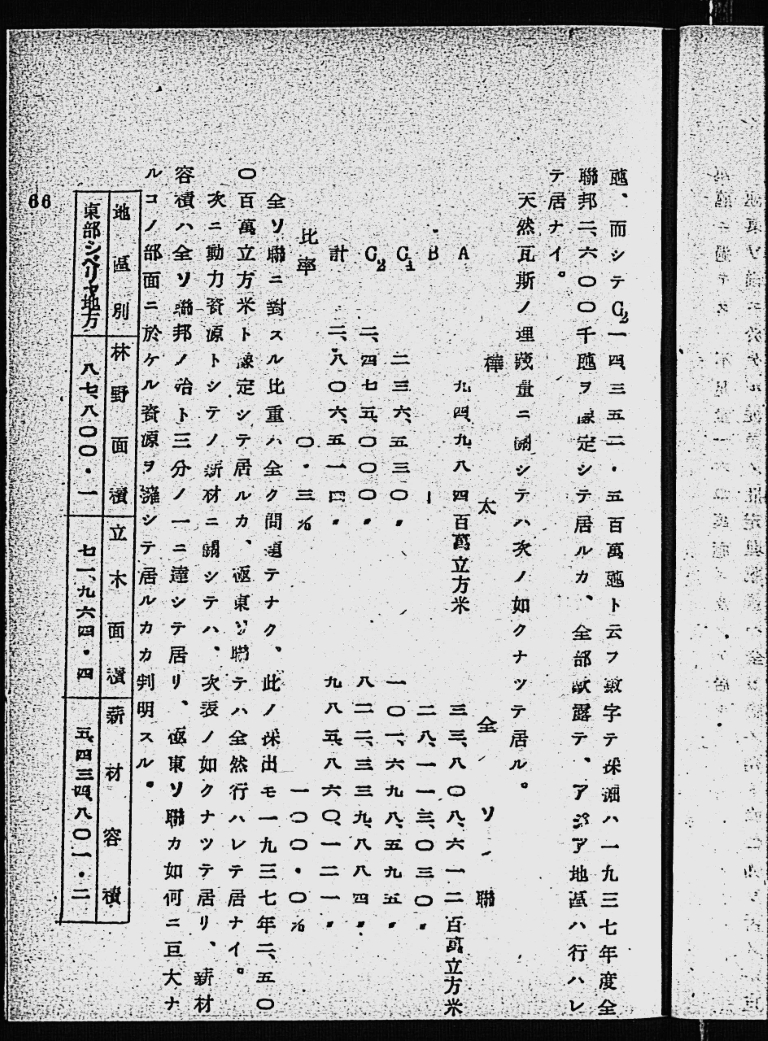 瓲、而シテC₂一四三五二・五百萬瓲ト云フ數字テ採油ハ一九三七年度全
聯邦二、六〇〇千瓲ヲ豫定シテ居ルカ、全部歐露テ、アジア地區ハ行ハレ
テ居ナイ。
天然瓦斯ノ埋藏量ニ關シテハ次ノ如クナツテ居ル。
樺太 全ソ聯
A 九四、九八四百萬立方米 三三、八〇八、六一二百萬立方米
B ー 二八、一一三、〇三〇〃
C₁ 二三六、五三〇〃 一〇一、六九八、五九五〃
C₂ 二、四七五、〇〇〇〃 八二二、三三九、八八四〃
計 二、八〇六、五一四〃 九八五、八六〇、一二一〃
比率 〇・三% 一〇〇・〇%
全ソ聯ニ對スル比重ハ全ク問題テナク、此ノ採出モ一九三七年二、五〇
〇百萬立方米ト豫定シテ居ルカ、極東ソ聯テハ全然行ハレテ居ナイ。
次ニ動力資源トシテノ薪材ニ關シテハ、次表ノ如クナツテ居リ、薪材
容積ハ全ソ聯邦ノ殆ト三分ノ一ニ達シテ居リ、極東ソ聯カ如何ニ巨大ナ
ルコノ部面ニ於ケル資源ヲ擁シテ居ルカカ判明スル。
地區別 林野面積 立木面積 薪材容積
東部シベリヤ地方 八七、八〇〇・一 七一、九六四・四 五、四三四、八〇一・二
66